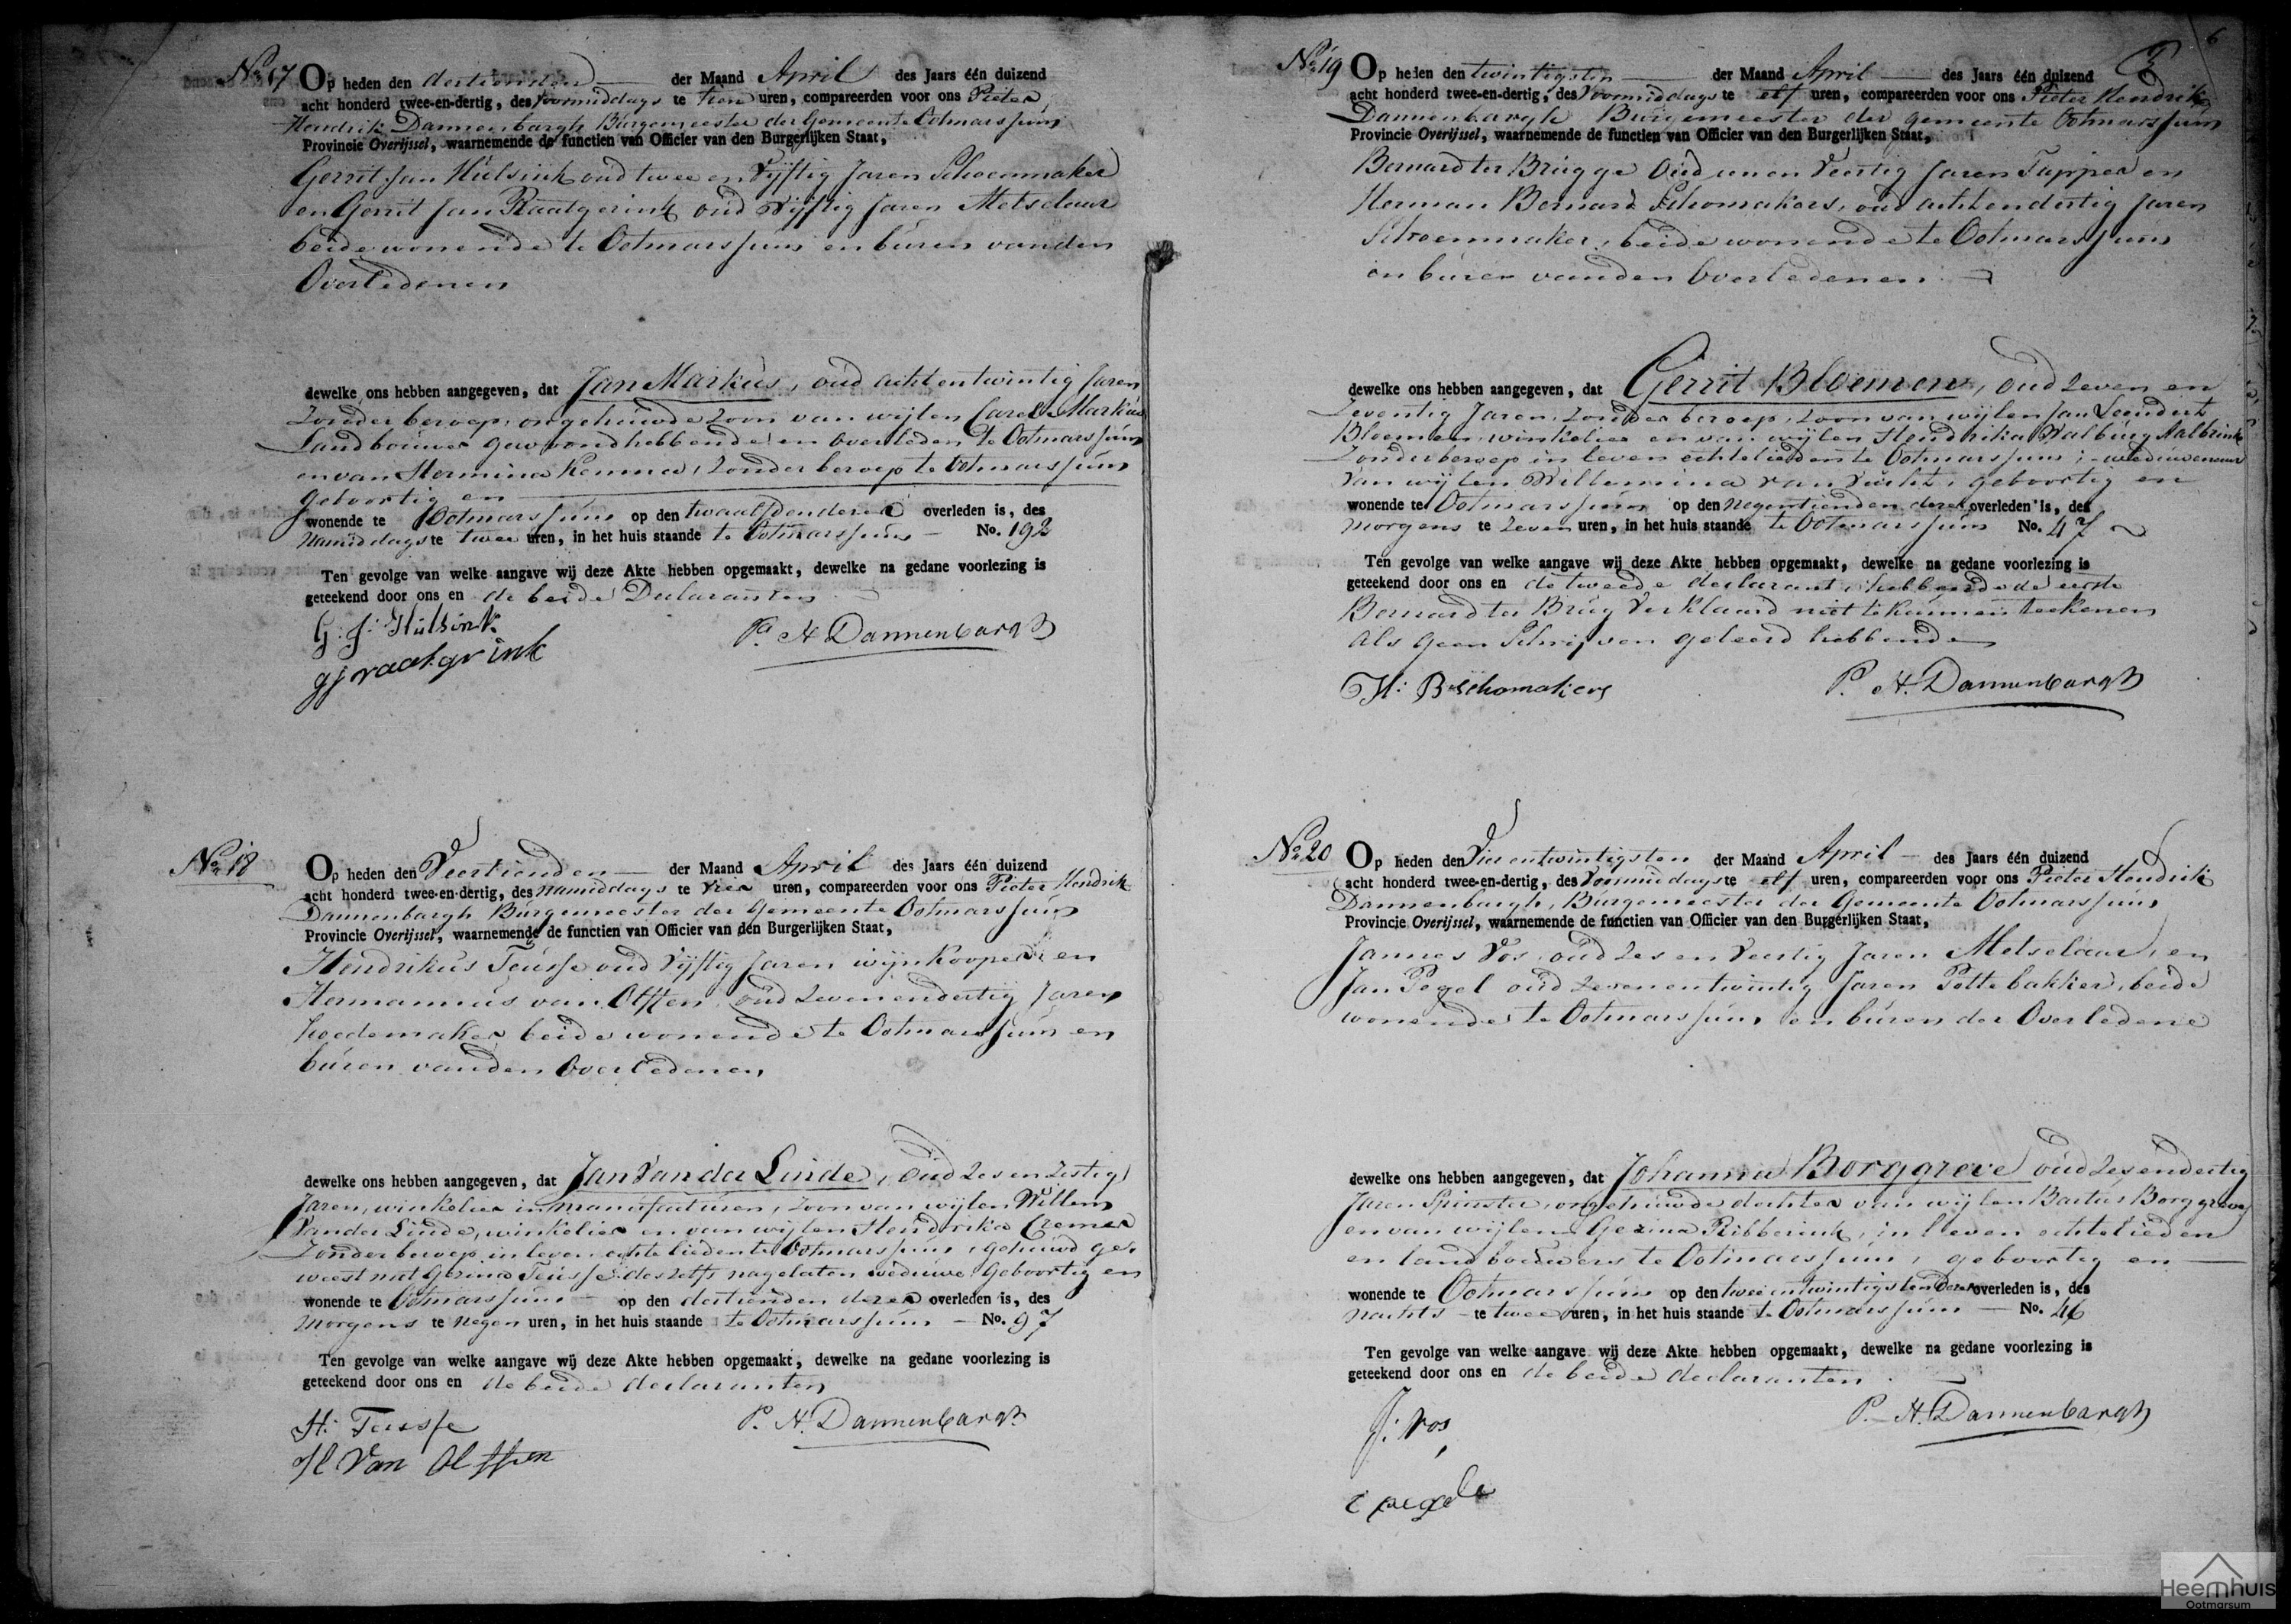 No 17 Op heden den dertienden der Maand April des Jaars één duizend
acht honderd twee-en-dertig, des voormiddags te tien uren, compareerden voor ons Pieter
Hendrik Dannenbargh Burgemeester der Gemeente Ootmarssum
Provincie Overijssel, waarnemende de functien van Officier van den Burgerlijken Staat,
Gerrit Jan Hulsink oud twee en vijftig Jaren Schoenmaker
en Gerrit Jan Raatgerink oud vijftig Jaren Metselaar
beide wonende te Ootmarssum en buren van den
Overledenen
dewelke ons hebben aangegeven, dat Jan Markus, oud acht en twintig Jaren
zonder beroep, ongehuwde zoon van wijlen Carel Markus
Landbouwer gewoond hebbende en overleden te Ootmarssum
en van Hermina Kemna, zonder beroep te Ootmarssum
geboortig en
wonende te Ootmarssum op den twaalfden dezer overleden is, des
namiddags te twee uren, in het huis staande te Ootmarssum No. 192
Ten gevolge van welke aangave wij deze Akte hebben opgemaakt, dewelke na gedane voorlezing is
geteekend door ons en de beide Declaranten
G: J: Hulsink P. H Dannenbargh
gj raatgrink
No 18 Op heden den Veertienden der Maand April des Jaars één duizend
acht honderd twee-en-dertig, des namiddags te vier uren, compareerden voor ons Pieter Hendrik
Dannenbargh Burgemeester der Gemeente Ootmarssum
Provincie Overijssel, waarnemende de functien van Officier van den Burgerlijken Staat,
Hendrikus Teusse oud vijftig Jaren wijnkooper en
Hermannus van Olffen, oud zevenendertig Jaren
hoedemaker beide wonende te Ootmarssum en
buren van den Overledenen,
dewelke ons hebben aangegeven, dat Jan Van der Linde, oud zes en zestig
Jaren, winkelier in manufacturen, zoon van wijlen Willem
Van der Linde, winkelier en van wijlen Hendrika Cremer
zonder beroep in leven echtelieden te Ootmarssum, gehuwd ge-
weest met Gezina Teusse deszelfs nagelaten weduwe. Geboortig en
wonende te Ootmarssum op den dertienden dezer overleden is, des
morgens te negen uren, in het huis staande te Ootmarssum No. 97
Ten gevolge van welke aangave wij deze Akte hebben opgemaakt, dewelke na gedane voorlezing is
geteekend door ons en de beide declaranten
H: Teusse P. H. Dannenbargh
H Van Olffen
6
No 19 Op heden den twintigsten der Maand April des Jaars één duizend
acht honderd twee-en-dertig, des voormiddags te elf uren, compareerden voor ons Pieter Hendrik
Dannenbargh Burgemeester der gemeente Ootmarssum
Provincie Overijssel, waarnemende de functien van Officier van den Burgerlijken Staat,
Bernard ter Brugge Oud een en Veertig Jaren Tapper en
Herman Bernard Schomakers, oud acht en dertig Jaren
Schoenmaker, beide wonende te Ootmarssum
en buren van den Overledenen
dewelke ons hebben aangegeven, dat Gerrit Bloemen, oud zeven en
zeventig Jaren, zonder beroep, zoon van wijlen Jan Leendert
Bloemen winkelier en van wijlen Hendrika Walburg Aalbrink
zonder beroep in leven echtelieden te Ootmarssum; weduwenaar
van wijlen Willemina van geboortig en
wonende te Ootmarssum op den negentienden dezer overleden is, des
morgens te zeven uren, in het huis staande te Ootmarssum No. 47
Ten gevolge van welke aangave wij deze Akte hebben opgemaakt, dewelke na gedane voorlezing is
geteekend door ons en de tweede declarant, hebbende de eerste
Bernard ter Brug verklaard niet te kunnen teekenen
als geen Schrijven geleerd hebbende
H: B Schomakers P. H. Dannenbargh
No 20 Op heden den Vier en twintigsten der Maand April des Jaars één duizend
acht honderd twee-en-dertig, des voormiddags te elf uren, compareerden voor ons Pieter Hendrik
Dannenbargh, Burgemeester der Gemeente Ootmarssum
Provincie Overijssel, waarnemende de functien van Officier van den Burgerlijken Staat,
Jannes Vos, oud zes en Veertig Jaren Metselaar, en
Jan Pegel oud zeven en twintig Jaren Pottebakker, beide
wonende te Ootmarssum, en buren der Overledene
dewelke ons hebben aangegeven, dat Johanna Borggreve oud zes en dertig
Jaren Spinster, ongehuwde dochter van wijlen Bartus Borggreve
en van wijlen Gezina Ribberink, in leven echtelieden
en landbouwers te Ootmarssum, geboortig en
wonende te Ootmarssum op den twee en twintigsten dezer overleden is, des
nachts te twee uren, in het huis staande te Ootmarssum No. 46
Ten gevolge van welke aangave wij deze Akte hebben opgemaakt, dewelke na gedane voorlezing is
geteekend door ons en de beide declaranten
J: Vos P. H. Dannenbargh
Heemhuis
Ootmarsum